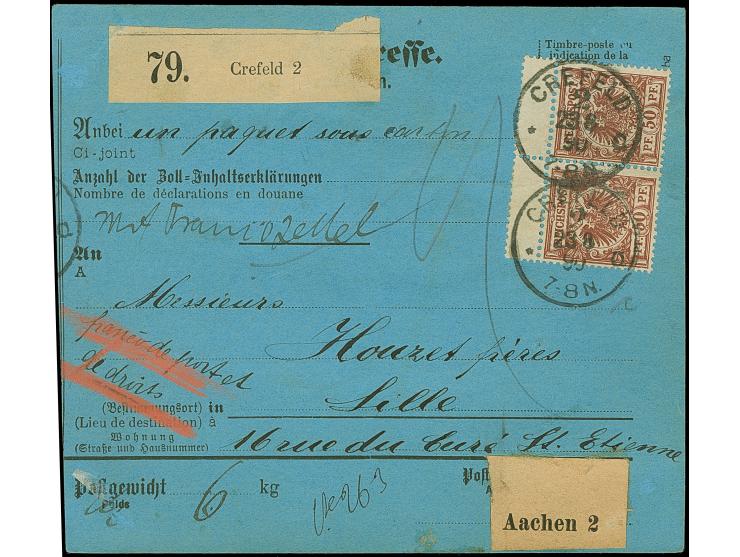 79. Crefeld 2
resse.
n.
Timbre-poste ou
indication de la
CREFELD
7-8N.
REICHSPOST 50 PF.
7-8N.
Anbei un paquet sous carton
Ci-joint
Anzahl der Zoll-Inhaltserklärungen
Nombre de déclarations en douane
Mit Francozettel
An
A
Messieurs
Houzet frères
Lille
franco de port et
de droits
(Bestimmungsort) in
(Lieu de destination) à
Wohnung
(Straße und Hausnummer)
16 rue du Curé St. Etienne
Postgewicht 6 kg
Poids
Post
Aachen 2